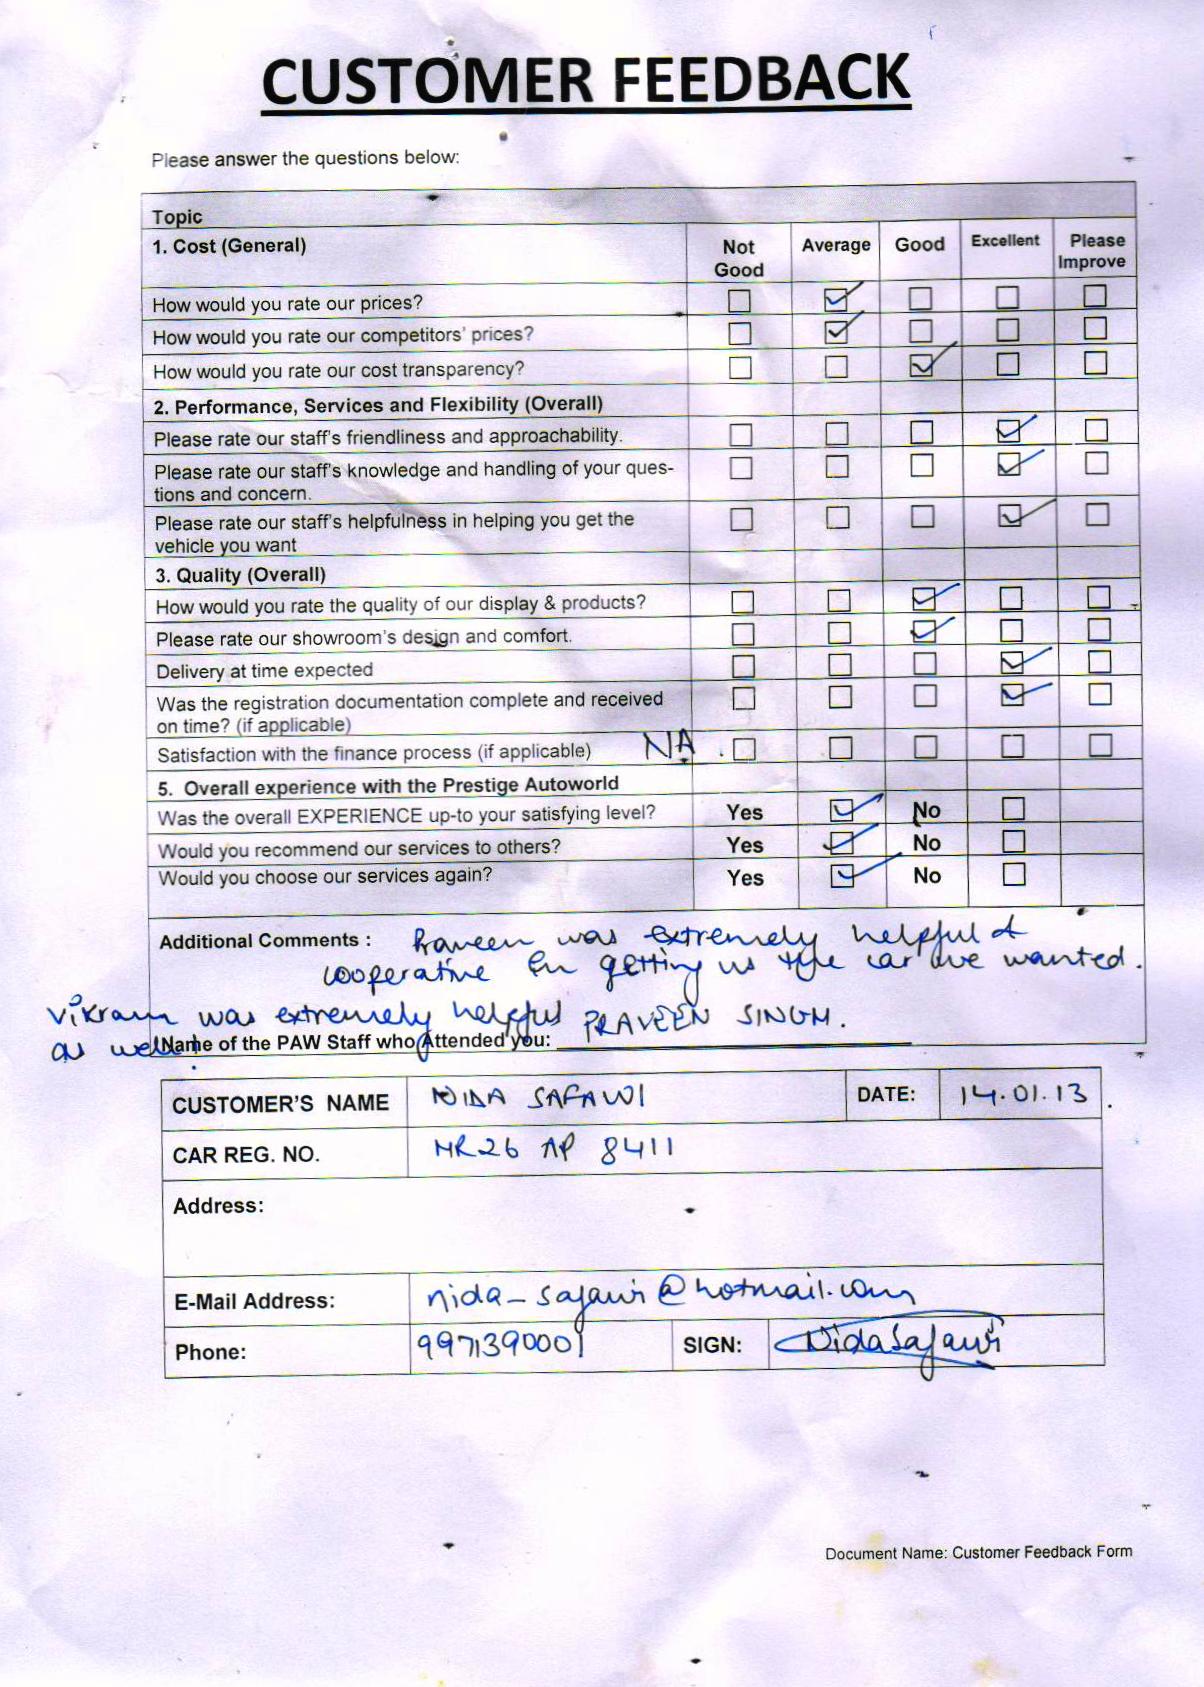 CUSTOMER FEEDBACK
Please answer the questions below:
Topic
1. Cost (General) Not Good Average Good Excellent Please Improve
How would you rate our prices?
How would you rate our competitors' prices?
How would you rate our cost transparency?
2. Performance, Services and Flexibility (Overall)
Please rate our staff's friendliness and approachability.
Please rate our staff's knowledge and handling of your ques-
tions and concern.
Please rate our staff's helpfulness in helping you get the
vehicle you want
3. Quality (Overall)
How would you rate the quality of our display & products?
Please rate our showroom's design and comfort.
Delivery at time expected
Was the registration documentation complete and received
on time? (if applicable)
Satisfaction with the finance process (if applicable) NA.
5. Overall experience with the Prestige Autoworld
Was the overall EXPERIENCE up-to your satisfying level? Yes No
Would you recommend our services to others? Yes No
Would you choose our services again? Yes No
Additional Comments : Praveen was extremely helpful &
cooperative in getting us the car we wanted.
Vikram was extremely helpful
as well.
Name of the PAW Staff who Attended you: PRAVEEN SINGH.
CUSTOMER'S NAME NIDA SAFAWI DATE: 14.01.13
CAR REG. NO. HR26 AP 8411
Address:
E-Mail Address: nida_safawi@hotmail.com
Phone: 9971390001 SIGN: Nida Safawi
Document Name: Customer Feedback Form